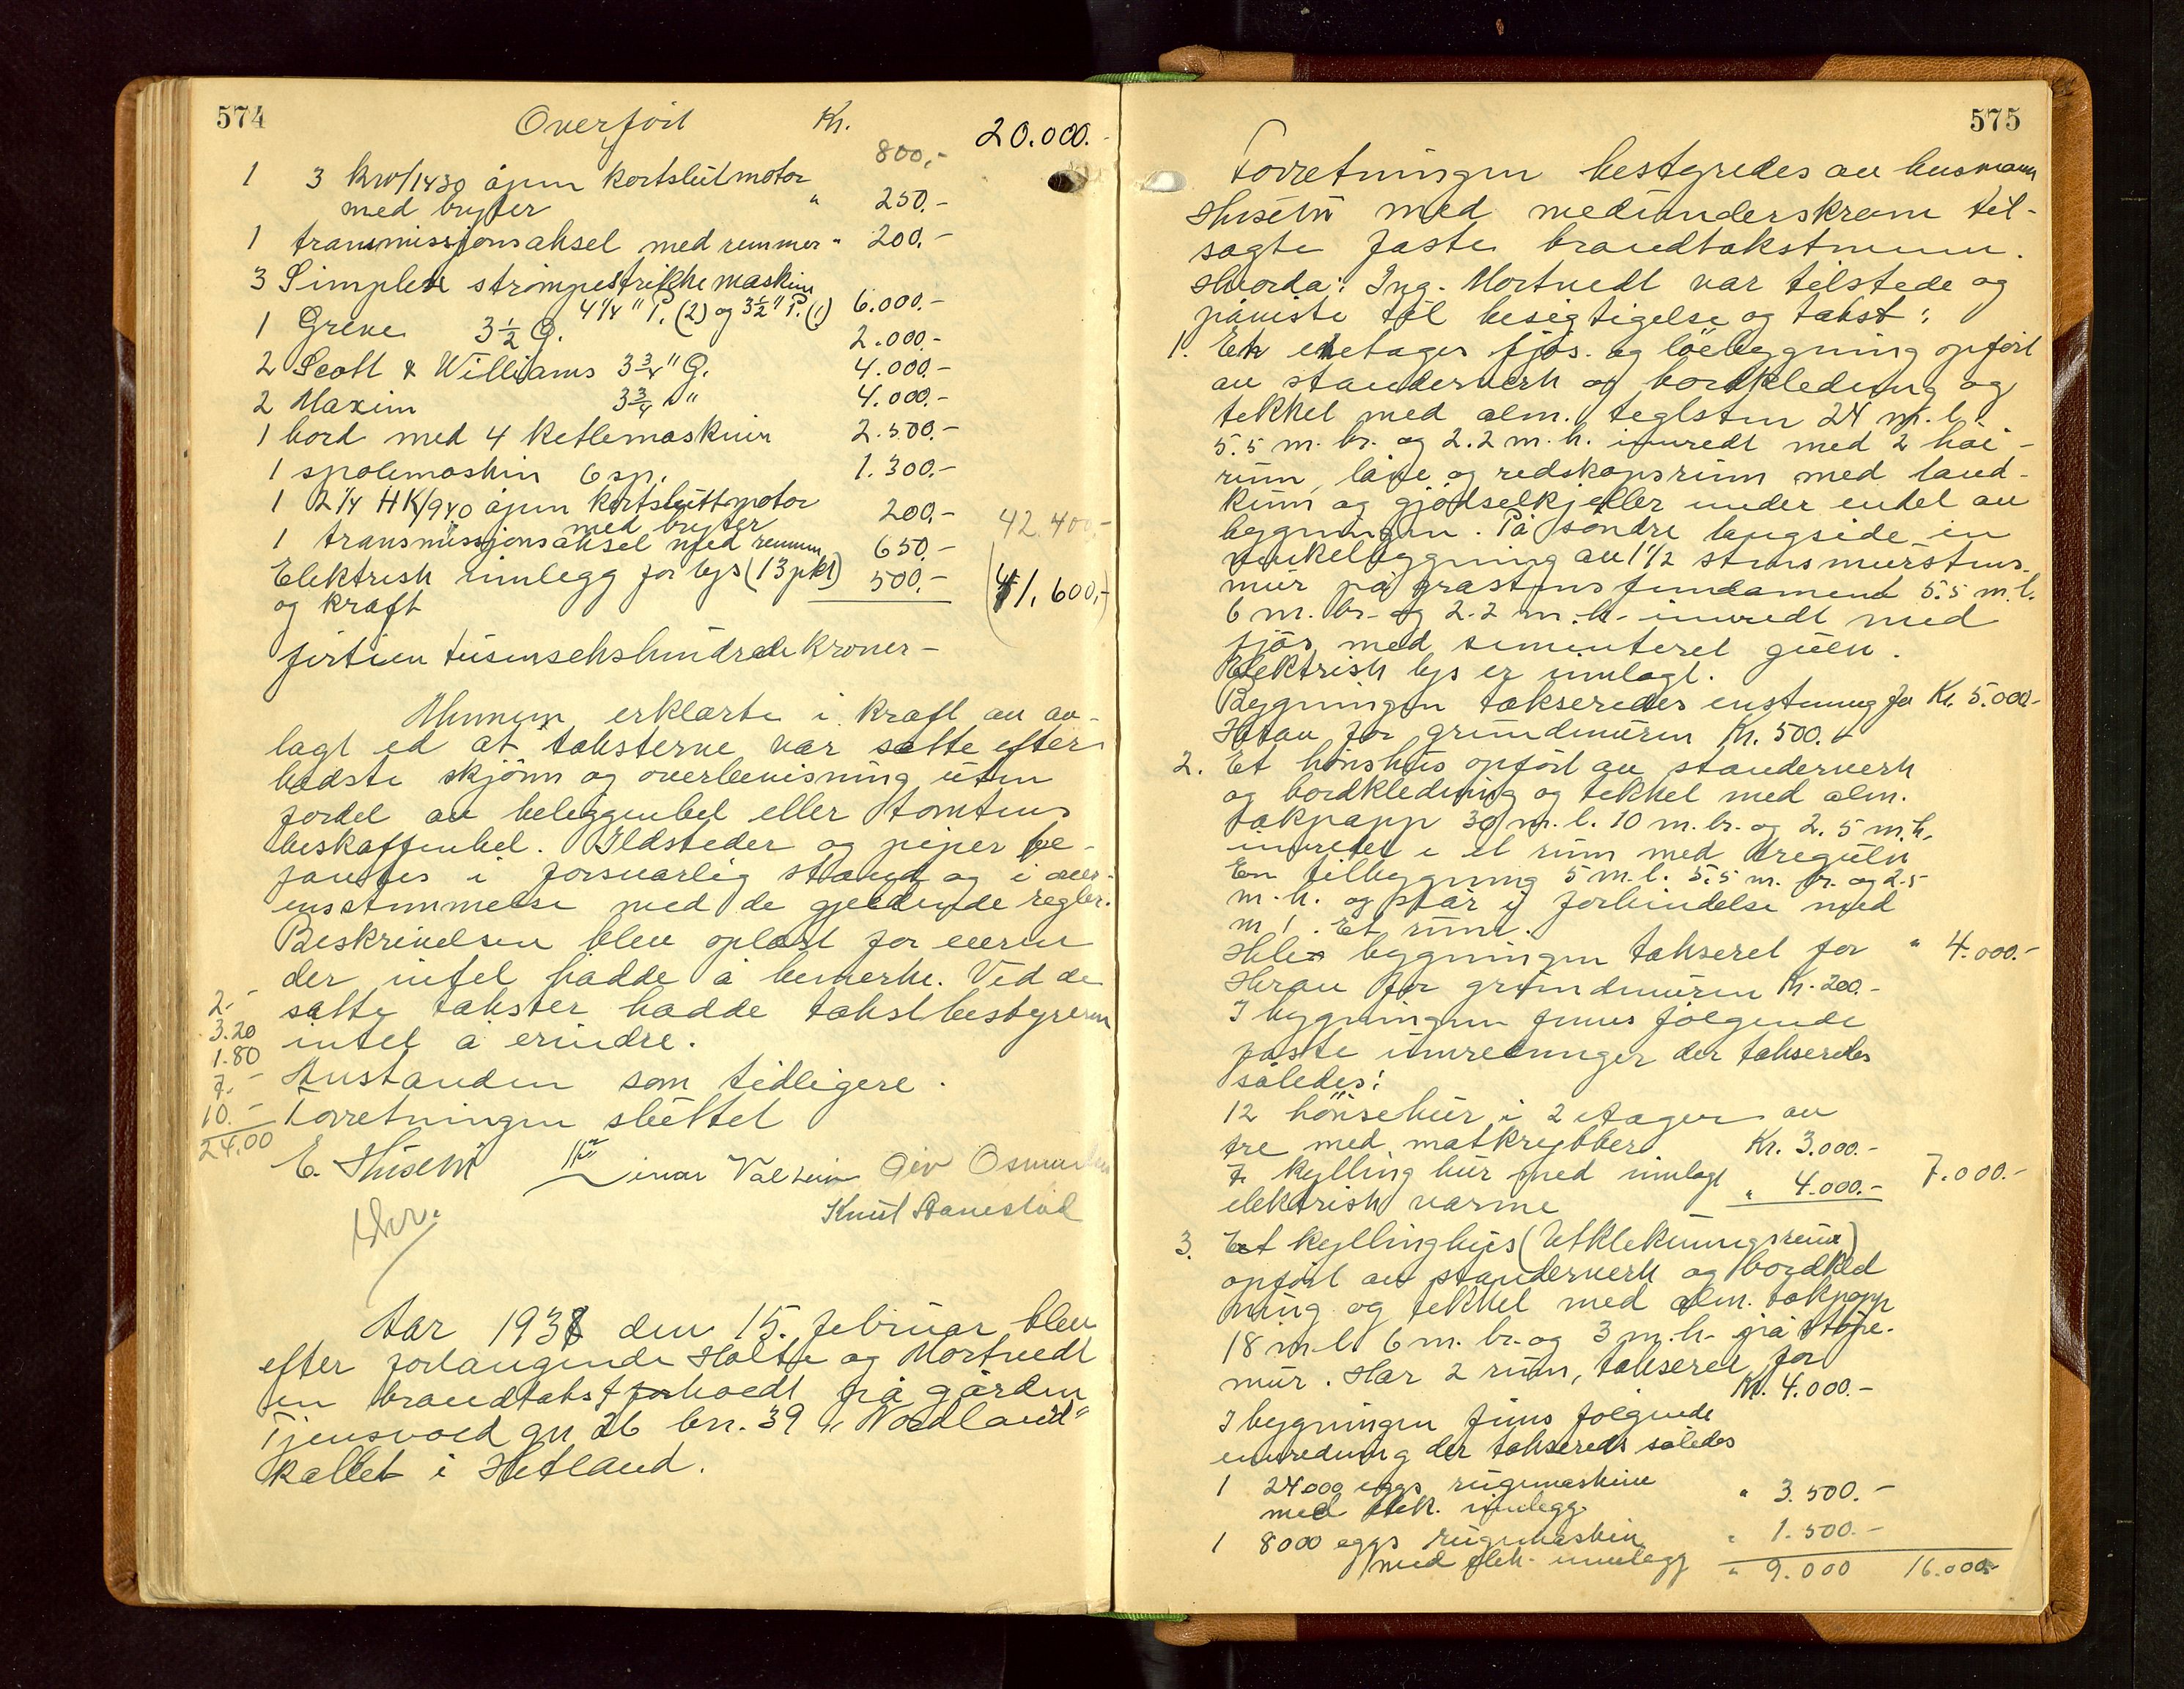 574
Overført Kr. 20.000.-
800,-
1 3 kw/1430 åpen kortslutmotor
med bryter " 250.-
1 transmissjonsaksel med remmer " 200.-
3 Simplex strømpestrikkemaskin
4 1/4" P. (2) og 3 1/2" P. (1) 6.000.-
1 Greve 3 1/2 G. 2.000.-
2 Scott & Williams 3 3/4" G. 4.000.-
2 Maxim 3 3/4 " 4.000.-
1 bord med 4 ketlemaskiner 2.500.-
1 spolemaskin 6 sp. 1.300.-
1 2 1/4 HK/940 åpen kortsluttmotor
med bryter 200.- 42.400,-
1 transmissjonsaksel med remmer 650.-
Elektrisk innlegg for lys (13 pkt) 500.- (41.600,-)
og kraft
førtien tusenseks hundrede kroner -
Mennene erklærte i kraft av av-
lagt ed at taksterne var satte efter
bedste skjønn og overbevisning uten
fordel av beliggenhet eller tomtens
beskaffenhet. Ildsteder og piper be-
fantes i forsvarlig stand og i over-
ensstemmelse med de gjeldende regler.
Beskrivelsen blev oplæst for eieren
der intet hadde å bemerke. Ved de
2.- satte takster hadde takstbestyreren
3.20 intet å erindre.
1.80
7.- Avstanden som tidligere.
10.- Forretningen sluttet
24.00
E. Husebø Einar Valheim Giv Osmundsen
Knut Stanestøl
Aar 1938 den 15. februar blev
efter forlangende Holte og Mortvedt
en brandtakst forhoedt på gården
Tjensvold gn 26 bn. 39 "Nordland"
kallet i Hetland.
575
Forretningen bestyredes av lensmann
Husebø med medunderskrevne til-
sagte faste brandtakstmenn.
Hvorda: Ing. Mortvedt var tilstede og
påviste til besigtigelse og takst:
1. En enetages fjøs- og løebygning opført
av standerverk og bordkledning og
tekket med alm. teglsten 24 m. l.
5.5 m. br. og 2.2 m. h. innredt med 2 høi-
rum, låve og redskapsrum med land-
kum og gjødselkjeller under endel av
bygningen. På søndre langside en
vinkelbygning av 1 1/2 stens murstens
mur på gråstens fundament 5.5 m. l.
6 m. br. og 2.2 m. h. innredt med
fjøs med sementeret gulv.
Elektrisk lys er innlagt.
Bygningen takseredes enstemmig for Kr. 5.000.-
Herav for grundmuren Kr. 500.-
2. Et hønshus opført av standerverk
og bordkledning og tekket med alm.
takpapp 30 m. l. 10 m. br. og 2.5 m. h.
innredet i et rum med tregulv
En tilbygning 5 m. l. 5.5 m. br. og 2.5
m. h. og står i forbindelse med
m 1. Et rum.
Hele bygningen takseret for " 4.000.-
Herav for grundmuren Kr. 200.-
I bygningen finnes følgende
faste innredninger der takseredes
således:
12 hønsebur i 2 etager av
tre med matkrybber Kr. 3.000.-
7 kylling bur med innlagt " 4.000.- 7.000.-
elektrisk varme
3. Et kyllinghus (Utklekningsrum)
opført av standerverk og bordkled
ning og tekket med alm. takpapp
18 m. l. 6 m. br. og 3 m. h. på støpe-
mur. Har 2 rum, takseret for
Kr. 4.000.-
I bygningen finns følgende
innredning der takseredes således
1 24000 eggs rugemaskine
med elek. innlegg " 3.500.-
1 8000 eggs rugemaskin " 1.500.-
med elek. innlegg " 9.000 16.000.-